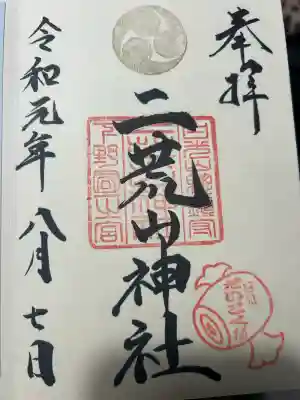 奉拝
二荒山神社
令和元年八月七日